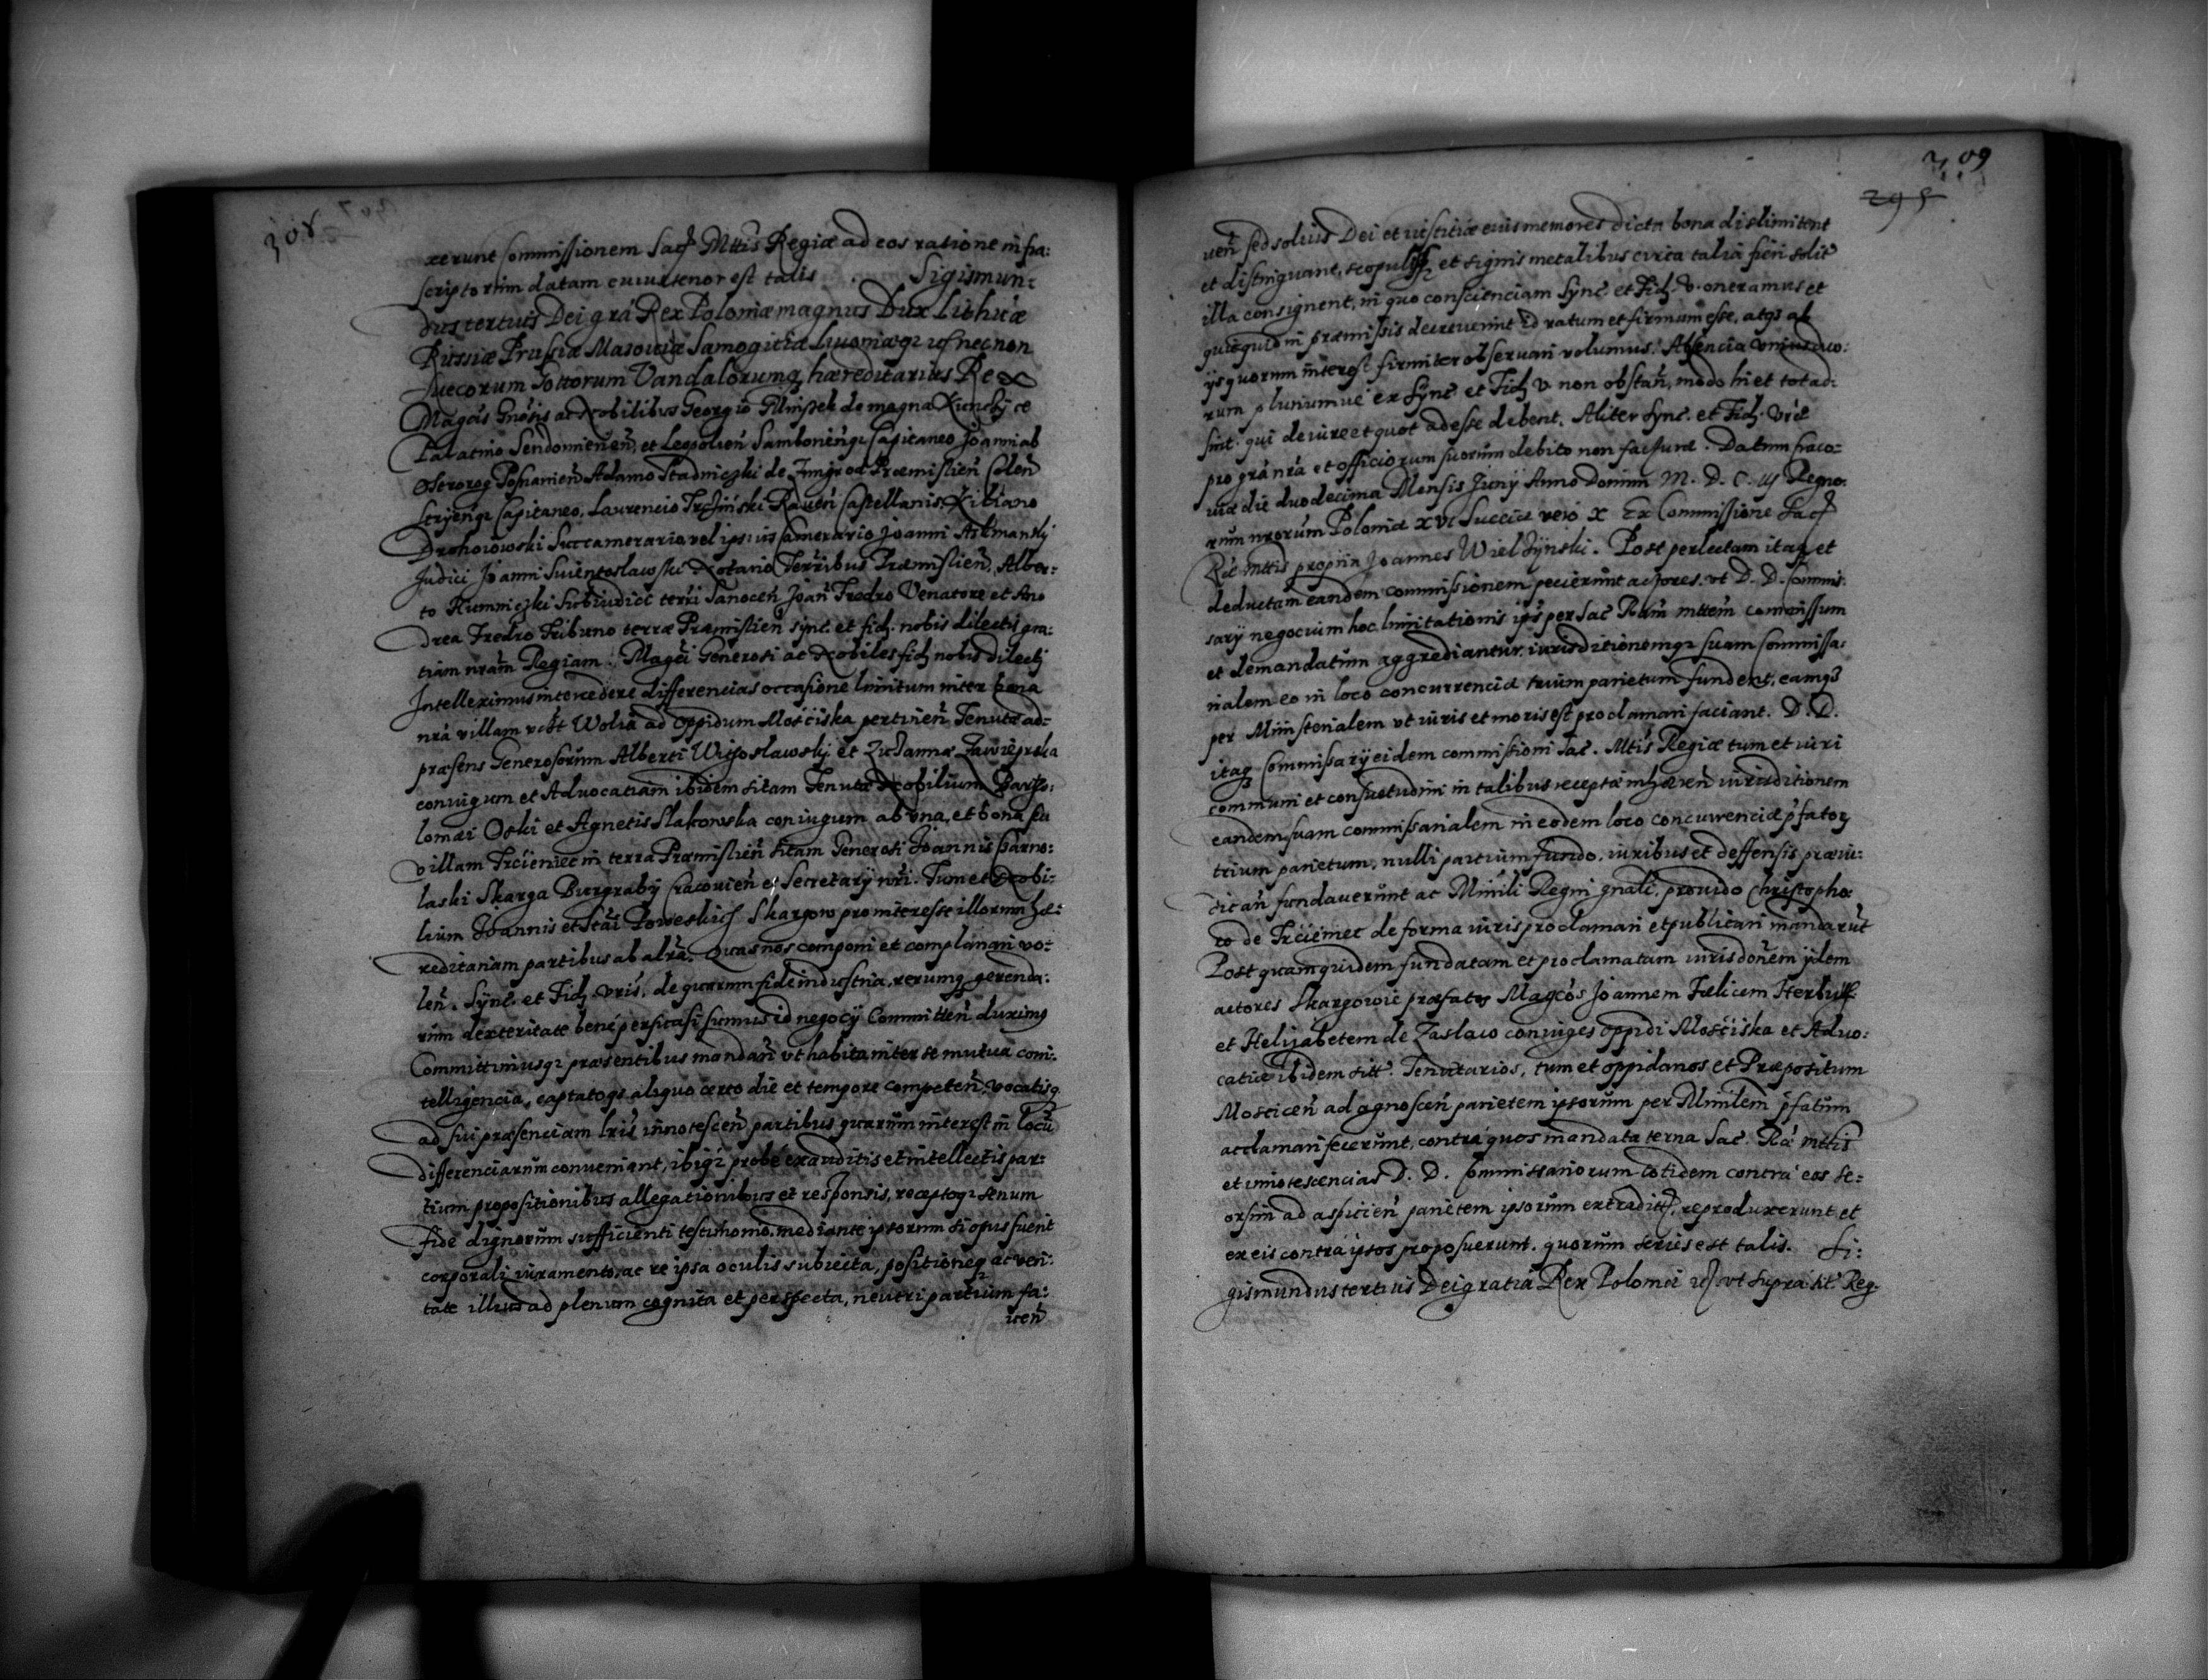 308
xerunt Commissionem Sacr Mttis Regiæ ad eos ratione infra:
scriptorum datam cuius tenor est talis . Sigismun:
dus tertius Dei gra Rex Poloniæ magnus Dux Lithuæ
Russiæ Prussiæ Masouiæ Samogitiæ Liuoniæq3 nec non
Suecorum Gottorum Vandalorumq3 hæreditarius Rex
Magcis Gnosis ac Nobilibus Georgio Mnissek de magna Kunczyce
Palatino Sendomirien, et Leopolien Samborienq3 Capitaneo Joanni ab
Ostrorog Posnanien Adamo Stadniczki de Zmigrod Præmislien Colen
Stryenq3 Capitaneo, Laurencio Raven Castellanis, Kiliano
Drohoiowski Succamerario vel ipsius Camerario Joanni
Judici Joanni Swientoslawski Notario Terribus Præmislien, Alber:
to Humniczki Subiudici terri Sanocen Joan Fredro Venatore et An
drea Fredro Tribuno terræ Præmislien sync. et fid. nobis dilectis gra:
tiam nram Regiam. Magci Generosi ac Nobiles fid nobis dilecti
Intelleximus intercedere differencias occasione limitum inter bona
nra villam Wolia ad oppidum Mościska pertinen Tenutæ ad
præsens Generosorum Alberti Witoslawski et Zusannæ
coniugum et Aduocatiam ibidem sitam Tenutæ Nobilium Barto:
lomæi Oski et Agnetis Slakowska coniugum ab vna, et bona seu
villam Trcieniec in terra Præmislien sitam Generosi Joannis
laski Skarga Burgrabij Cracouien et Secretarij nri. Tum et Nobi:
lium Joannis et Skargow pro interesse illorum hæ:
reditariam partibus ab altra. Quas nos componi et complanari vo:
len. Sync. et Fid. vris, de quarum fide industria, rerumq3 gerenda:
rum dexteritate bene persuasi sumus id negocij Committen duximus
Committimusq3 præsentibus mandan vt habita inter se mutua coni:
telligencia, captatoq3 aliquo certo die et tempore competen, vocatisq3
ad sui præsenciam lris innotescen partibus quarum interest in locu
differenciarum conueniant, ibiq3 probe exauditis et intellectis par:
tium propositionibus allegationibus et responsis, receptoq3 senum
fide dignorum sufficienti testimonio, mediante ipsorum si opus fuerit
corporali iuramento, ac re ipsa oculis subiecta, positioneq3 ac veri:
tate illius ad plenum cognita et perspecta, neutri partium fa:
uen
309
295
uen sed solius Dei et iustitiæ eius memores dicta bona dislimitent
et distinguant, scopulisq3 et signis metalibus circa talia fieri solit
illa consignent, in quo conscienciam Sync. et Fid. v. oneramus et
quicquid in præmissis decreuerint id ratum et firmum esse, atq3 ab
ijs quorum interest firmiter obseruari volumus. Absencia vnius duo:
rum pluriumue ex Sync et Fid v. non obstan, modo hi et tot ad:
sint. qui de iure et quot adesse debent. Aliter Sync. et Fid. vræ
pro gra nra et officiorum suorum debito non facturæ. Datum Craco:
uiæ die duodecima Mensis Junij Anno Domini M. D. C. iij Regno:
rum nrorum Poloniæ xvi Sueciæ vero x Ex Commissione Sacr
Ræ mttis propria Joannes Wielzynski. Post perlectam itaq3 et
deductam eandem commissionem pecierunt actores. vt D. D. Commis:
sarij negocium hoc limitationis ipis per Sac Ram mttem commissum
et demandatum aggrediantur, iurisditionemq3 suam Commissa:
rialem eo in loco concurrenciæ trium parietum fundent, eamq3
per Ministerialem vt iuris et moris est proclamari faciant. D. D.
itaq3 Commissarij eidem commissioni Sac. Mtis Regiæ tum et iuri
communi et consuetudini in talibus receptæ inhæren iurisditionem
eandem suam commissarialem in eodem loco concurrenciæ pfator
trium parietum, nulli partium fundo, iuribus et deffensis præiu:
dican fundauerunt ac Minili Regni gnali, prouido Christopho:
ro de Trcieniec de forma iuris proclamari et publicari mandarut
Post quam quidem fundatam et proclamatam iurisdonem ijdem
actores Skargowie præfatos Magcos Joannem Fælicem Herburt
et Helizabetem de Zaslaw coniuges oppidi Mościska et Aduo:
catiæ ibidem sitt. Tenutarios, tum et oppidanos et Præpositum
Moscicen ad agnoscen parietem ipsorum per Minilem pfatum
acclamari fecerunt, contra quos mandata terna Sac. Ræ mttis
et innotescencias D. D. Commissariorum totidem contra eos se:
orsim ad aspicien parietem ipsorum extradit, reproduxerunt et
ex eis contra ipsos proposuerunt. quorum series est talis. Si:
gismundus tertius Dei gratia Rex Poloniæ vt supra tit. Reg.